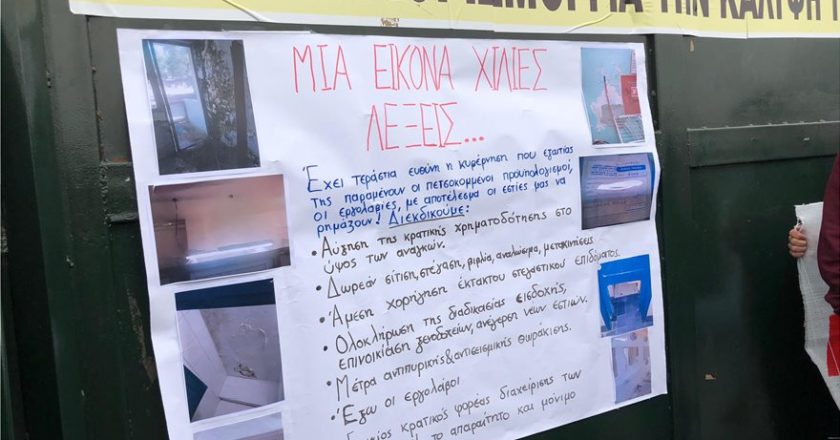 ΓΙΑ ΤΗΝ ΚΑΛΥΨΗ
ΜΙΑ ΕΙΚΟΝΑ ΧΙΛΙΕΣ
ΛΕΞΕΙΣ...
Έχει τεράστια ευθύνη η κυβέρνηση που εξαιτίας
της παραμένουν οι πετσοκομμένοι προϋπολογισμοί,
οι εργολαβίες, με αποτέλεσμα οι εστίες μας να
ρημάζουν! Διεκδικούμε:
• Αύξηση της κρατικής χρηματοδότησης στο
ύψος των αναγκών.
• Δωρεάν σίτιση, στέγαση, βιβλία, αναλώσιμα, μετακινήσεις
• Άμεση χορήγηση έκτακτου στεγαστικού επιδόματος.
• Ολοκλήρωση της διαδικασίας εισδοχής,
επινοικίαση ξενοδοχείων, ανέγερση νέων εστιών.
• Μέτρα αντιπυρικής & αντισεισμικής θωράκισης.
• Έξω οι εργολάβοι
κρατικός φορέας διαχείρισης των
με το απαραίτητο και μόνιμο